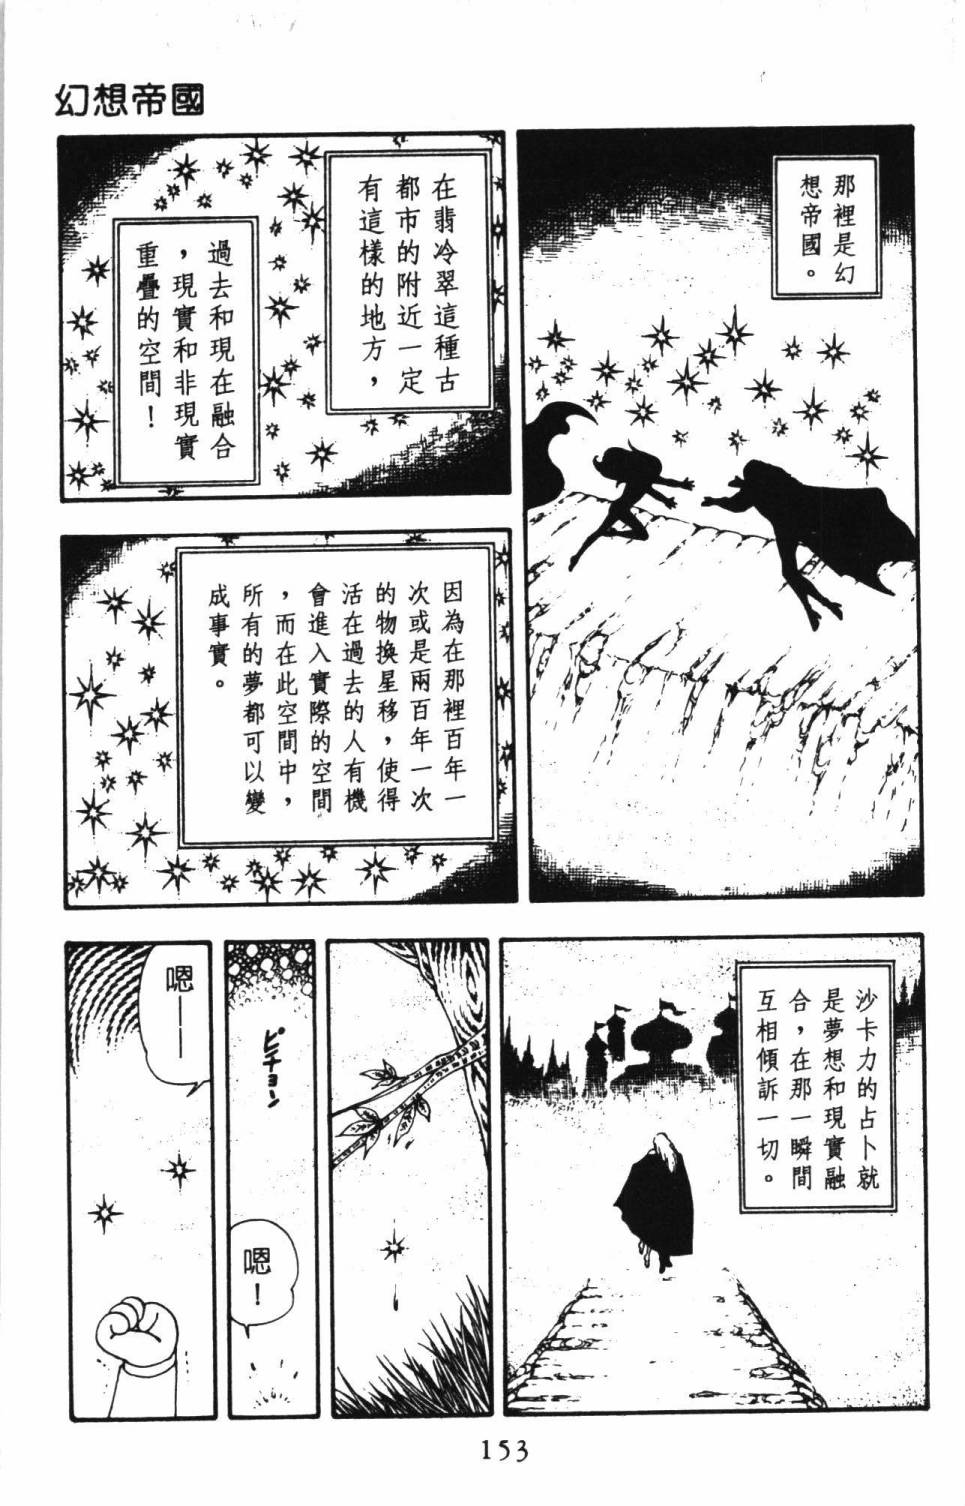 幻想帝國
那裡是幻
想帝國。
在翡冷翠這種古
都市的附近一定
有這樣的地方，
過去和現在融合
，現實和非現實
重疊的空間！
因為在那裡百年一
次或是兩百年一次
的物換星移，使得
活在過去的人有機
會進入實際的空間
，而在此空間中，
所有的夢都可以變
成事實。
沙卡力的占卜就
是夢想和現實融
合，在那一瞬間
互相傾訴一切。
ピチョン
嗯！
嗯——
153